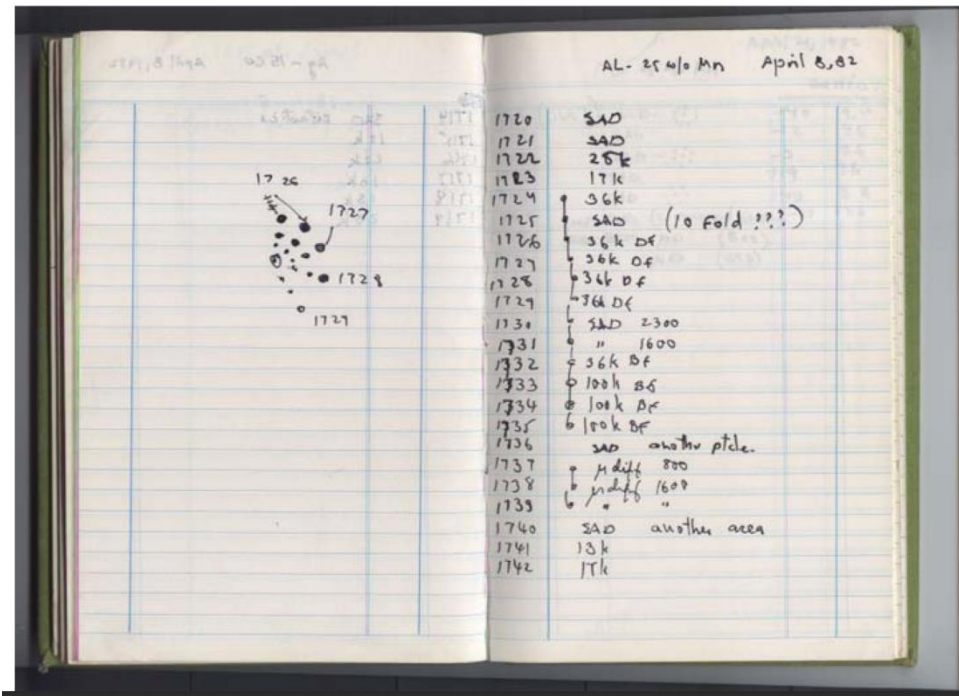 1726
1727
1728
1729
AL- 25 w/o Mn April 8, 82
1720 SAD
1721 SAD
1722 25k
1723 17k
1724 36k
1725 SAD (10 Fold ???)
1726 36k DF
1727 36k DF
1728 36k DF
1729 36k DF
1730 SAD 2300
1731 " 1600
1732 36k BF
1733 100k BF
1734 100k BF
1735 BF
1736 SAD another ptcle.
1737 μdiff 800
1738 μdiff 1600
1739 " "
1740 SAD another area
1741 13k
1742 17k